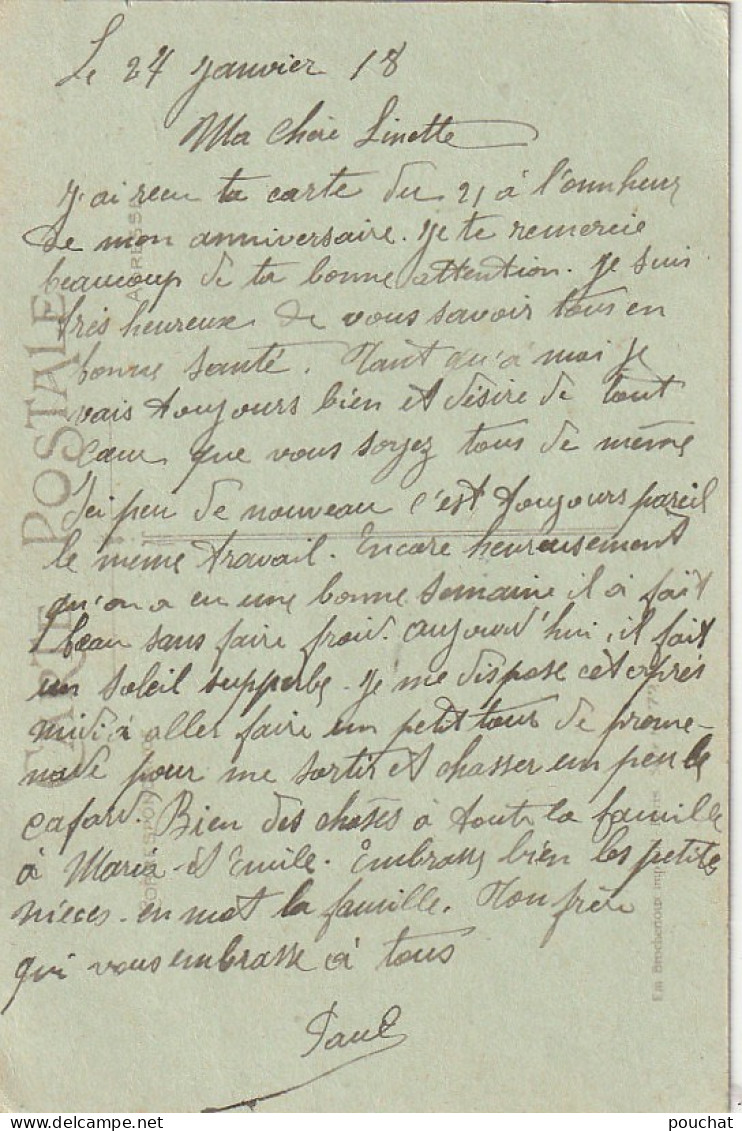 Le 24 Janvier 18
Ma Chère Linette
J'ai reçu ta carte du 21 à l'onnheur
de mon anniversaire. Je te remercie
beaucoup de ta bonne attention. Je suis
très heureux de vous savoir tous en
bonne santé. Tant qu'à moi je
vais toujours bien et désire de tout
cœur que vous soyez tous de même
Ici peu de nouveau c'est toujours pareil
le même travail. Encore heureusement
qu'on a eu une bonne semaine il à fait
beau sans faire froid. aujourd'hui, il fait
un soleil supperbe. Je me dispose cet après
midi à aller faire un petit tour de prome-
nade pour me sortir et chasser un peu le
cafard. Bien des choses à toute la famille
à Maria et Emile. Embrasse bien les petites
nièces. en mot la famille. Ton frère
qui vous embrasse à tous
Paul
CARTE POSTALE
CORRESPONDANCE
ADRESSE
Em Brocherioux imp
pouchat